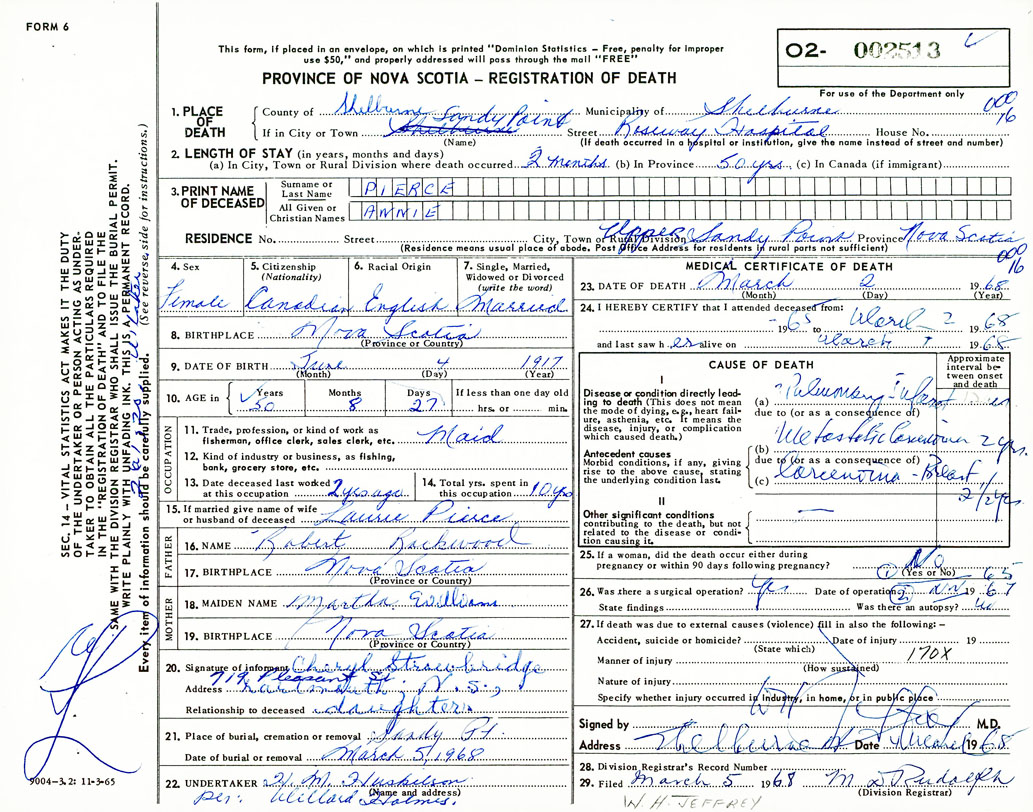 FORM 6
This form, if placed in an envelope, on which is printed "Dominion Statistics – Free, penalty for improper
use $50," and properly addressed will pass through the mail "FREE"
PROVINCE OF NOVA SCOTIA – REGISTRATION OF DEATH
O2- 002513
For use of the Department only
1. PLACE OF DEATH
County of Shelburne Municipality of Shelburne
000 16
If in City or Town Shelburne Sandy Point Street Roseway Hospital House No.
(Name) (If death occurred in a hospital or institution, give the name instead of street and number)
2. LENGTH OF STAY (in years, months and days)
(a) In City, Town or Rural Division where death occurred 2 months (b) In Province 50 yrs. (c) In Canada (if immigrant)
3. PRINT NAME OF DECEASED
Surname or Last Name PIERCE
All Given or Christian Names ANNIE
RESIDENCE No. Street City, Town or Rural Division Upper Sandy Point Province Nova Scotia
(Residence means usual place of abode. Post Office Address for residents in rural parts not sufficient)
000 16
4. Sex Female
5. Citizenship (Nationality) Canadian
6. Racial Origin English
7. Single, Married, Widowed or Divorced (write the word) Married
8. BIRTHPLACE Nova Scotia
(Province or Country)
9. DATE OF BIRTH June 4 1917
(Month) (Day) (Year)
10. AGE in Years 50 Months 8 Days 27 If less than one day old hrs. or min.
OCCUPATION
11. Trade, profession, or kind of work as fisherman, office clerk, sales clerk, etc. Maid
12. Kind of industry or business, as fishing, bank, grocery store, etc.
13. Date deceased last worked at this occupation 2 yrs. ago
14. Total yrs. spent in this occupation 10 yrs
15. If married give name of wife or husband of deceased Laurie Pierce
FATHER
16. NAME Robert Rockwood
17. BIRTHPLACE Nova Scotia
(Province or Country)
MOTHER
18. MAIDEN NAME Martha Williams
19. BIRTHPLACE Nova Scotia
(Province or Country)
20. Signature of informant Cheryl Strowbridge
Address 719 Pleasant St. Dartmouth N.S.,
Relationship to deceased daughter
21. Place of burial, cremation or removal Sandy Pt.
Date of burial or removal March 5, 1968
22. UNDERTAKER H. M. Huskilson
(Name and address)
per: Willard Holmes.
MEDICAL CERTIFICATE OF DEATH
23. DATE OF DEATH March 2 1968
(Month) (Day) (Year)
24. I HEREBY CERTIFY that I attended deceased from:
1965 to March 2 1968
and last saw h er alive on March 1 1968
CAUSE OF DEATH
Approximate interval between onset and death
I
Disease or condition directly leading to death (This does not mean the mode of dying, e.g., heart failure, asthenia, etc. It means the disease, injury, or complication which caused death.)
(a) Pulmonary Infarct
due to (or as a consequence of)
Antecedent causes
Morbid conditions, if any, giving rise to the above cause, stating the underlying condition last.
(b) Metastatic Carcinoma 2 yrs.
due to (or as a consequence of)
(c) Carcinoma - Breast 2 1/2 yrs
II
Other significant conditions
contributing to the death, but not related to the disease or condition causing it.
25. If a woman, did the death occur either during pregnancy or within 90 days following pregnancy? No
(Yes or No)
1 65
26. Was there a surgical operation? Yes Date of operation 2 1967
State findings Was there an autopsy? no
27. If death was due to external causes (violence) fill in also the following:–
Accident, suicide or homicide? Date of injury 19
(State which)
170X
Manner of injury
(How sustained)
Nature of injury
Specify whether injury occurred in industry, in home, or in public place
Signed by M.D.
Address Shelburne NS Date March 1968
28. Division Registrar's Record Number
29. Filed March 5 1968 M D Rudolph
(Division Registrar)
W. H. JEFFREY
SEC. 14 – VITAL STATISTICS ACT MAKES IT THE DUTY
OF THE UNDERTAKER OR PERSON ACTING AS UNDER-
TAKER TO OBTAIN ALL THE PARTICULARS REQUIRED
IN THE "REGISTRATION OF DEATH" AND TO FILE THE
SAME WITH THE DIVISION REGISTRAR WHO SHALL ISSUE THE BURIAL PERMIT.
WRITE PLAINLY WITH UNFADING INK. THIS IS A PERMANENT RECORD.
Every item of information should be carefully supplied. (See reverse side for instructions.)
9004-3.2: 11-3-65